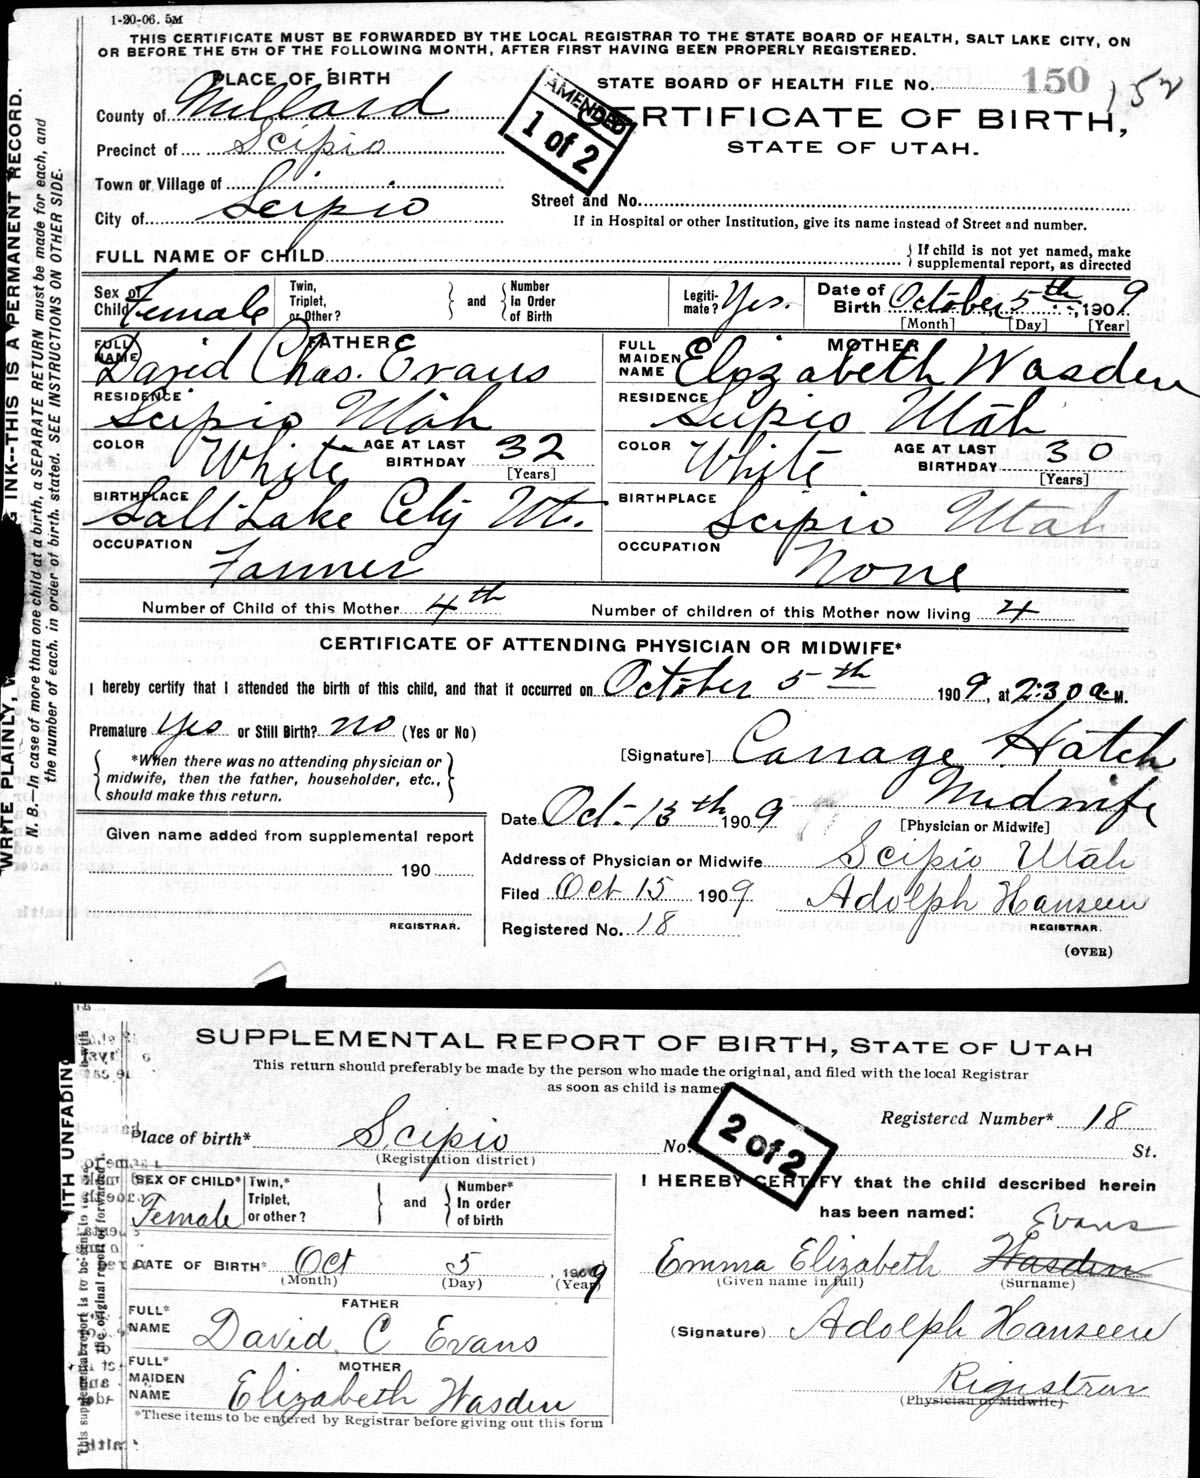 1-20-06. 5M
THIS CERTIFICATE MUST BE FORWARDED BY THE LOCAL REGISTRAR TO THE STATE BOARD OF HEALTH, SALT LAKE CITY, ON
OR BEFORE THE 5TH OF THE FOLLOWING MONTH, AFTER FIRST HAVING BEEN PROPERLY REGISTERED.
PLACE OF BIRTH
STATE BOARD OF HEALTH FILE NO. 150 152
County of Millard
AMENDED
1 of 2
CERTIFICATE OF BIRTH,
STATE OF UTAH.
Precinct of Scipio
Town or Village of
Street and No.
City of Scipio
If in Hospital or other Institution, give its name instead of Street and number.
FULL NAME OF CHILD
{If child is not yet named, make
supplemental report, as directed
Sex of Child Female
Twin, Triplet, or Other? } and { Number In Order of Birth
Legiti-mate? Yes.
Date of Birth October 5th, 1909
[Month] [Day] [Year]
FATHER
FULL NAME David Chas. Evans
MOTHER
FULL MAIDEN NAME Elizabeth Wasden
RESIDENCE Scipio Utah
RESIDENCE Scipio Utah
COLOR White AGE AT LAST BIRTHDAY 32 [Years]
COLOR White AGE AT LAST BIRTHDAY 30 [Years]
BIRTHPLACE Salt Lake City Ut.
BIRTHPLACE Scipio Utah
OCCUPATION Farmer
OCCUPATION None
Number of Child of this Mother 4th Number of children of this Mother now living 4
CERTIFICATE OF ATTENDING PHYSICIAN OR MIDWIFE*
I hereby certify that I attended the birth of this child, and that it occurred on October 5th 1909, at 2:30 a.M.
Premature yes or Still Birth? no (Yes or No)
{ *When there was no attending physician or
midwife, then the father, householder, etc.,
should make this return. }
[Signature] Carrage Hatch
Midwife
[Physician or Midwife]
Date Oct. 13th 1909
Given name added from supplemental report
190
REGISTRAR.
Address of Physician or Midwife Scipio Utah
Filed Oct 15 1909 Adolph Hanseen
REGISTRAR.
Registered No. 18
(OVER)
INK--THIS IS A PERMANENT RECORD.
WRITE PLAINLY,
N. B.--In case of more than one child at a birth, a SEPARATE RETURN must be made for each, and
the number of each, in order of birth, stated. SEE INSTRUCTIONS ON OTHER SIDE.
SUPPLEMENTAL REPORT OF BIRTH, STATE OF UTAH
This return should preferably be made by the person who made the original, and filed with the local Registrar
as soon as child is named
2 of 2
Registered Number* 18
Place of birth* Scipio
(Registration district)
No. St.
SEX OF CHILD* Female
Twin,* Triplet, or other? } and { Number* In order of birth
I HEREBY CERTIFY that the child described herein
has been named:
Evans
DATE OF BIRTH* Oct 5, 1909
(Month) (Day) (Year)
Emma Elizabeth Wasden
(Given name in full) (Surname)
FATHER
FULL* NAME David C Evans
(Signature) Adolph Hanseen
MOTHER
FULL* MAIDEN NAME Elizabeth Wasden
Registrar
(Physician or Midwife)
*These items to be entered by Registrar before giving out this form
WITH UNFADING
This supplemental report is to be sent
the original report or forwarded